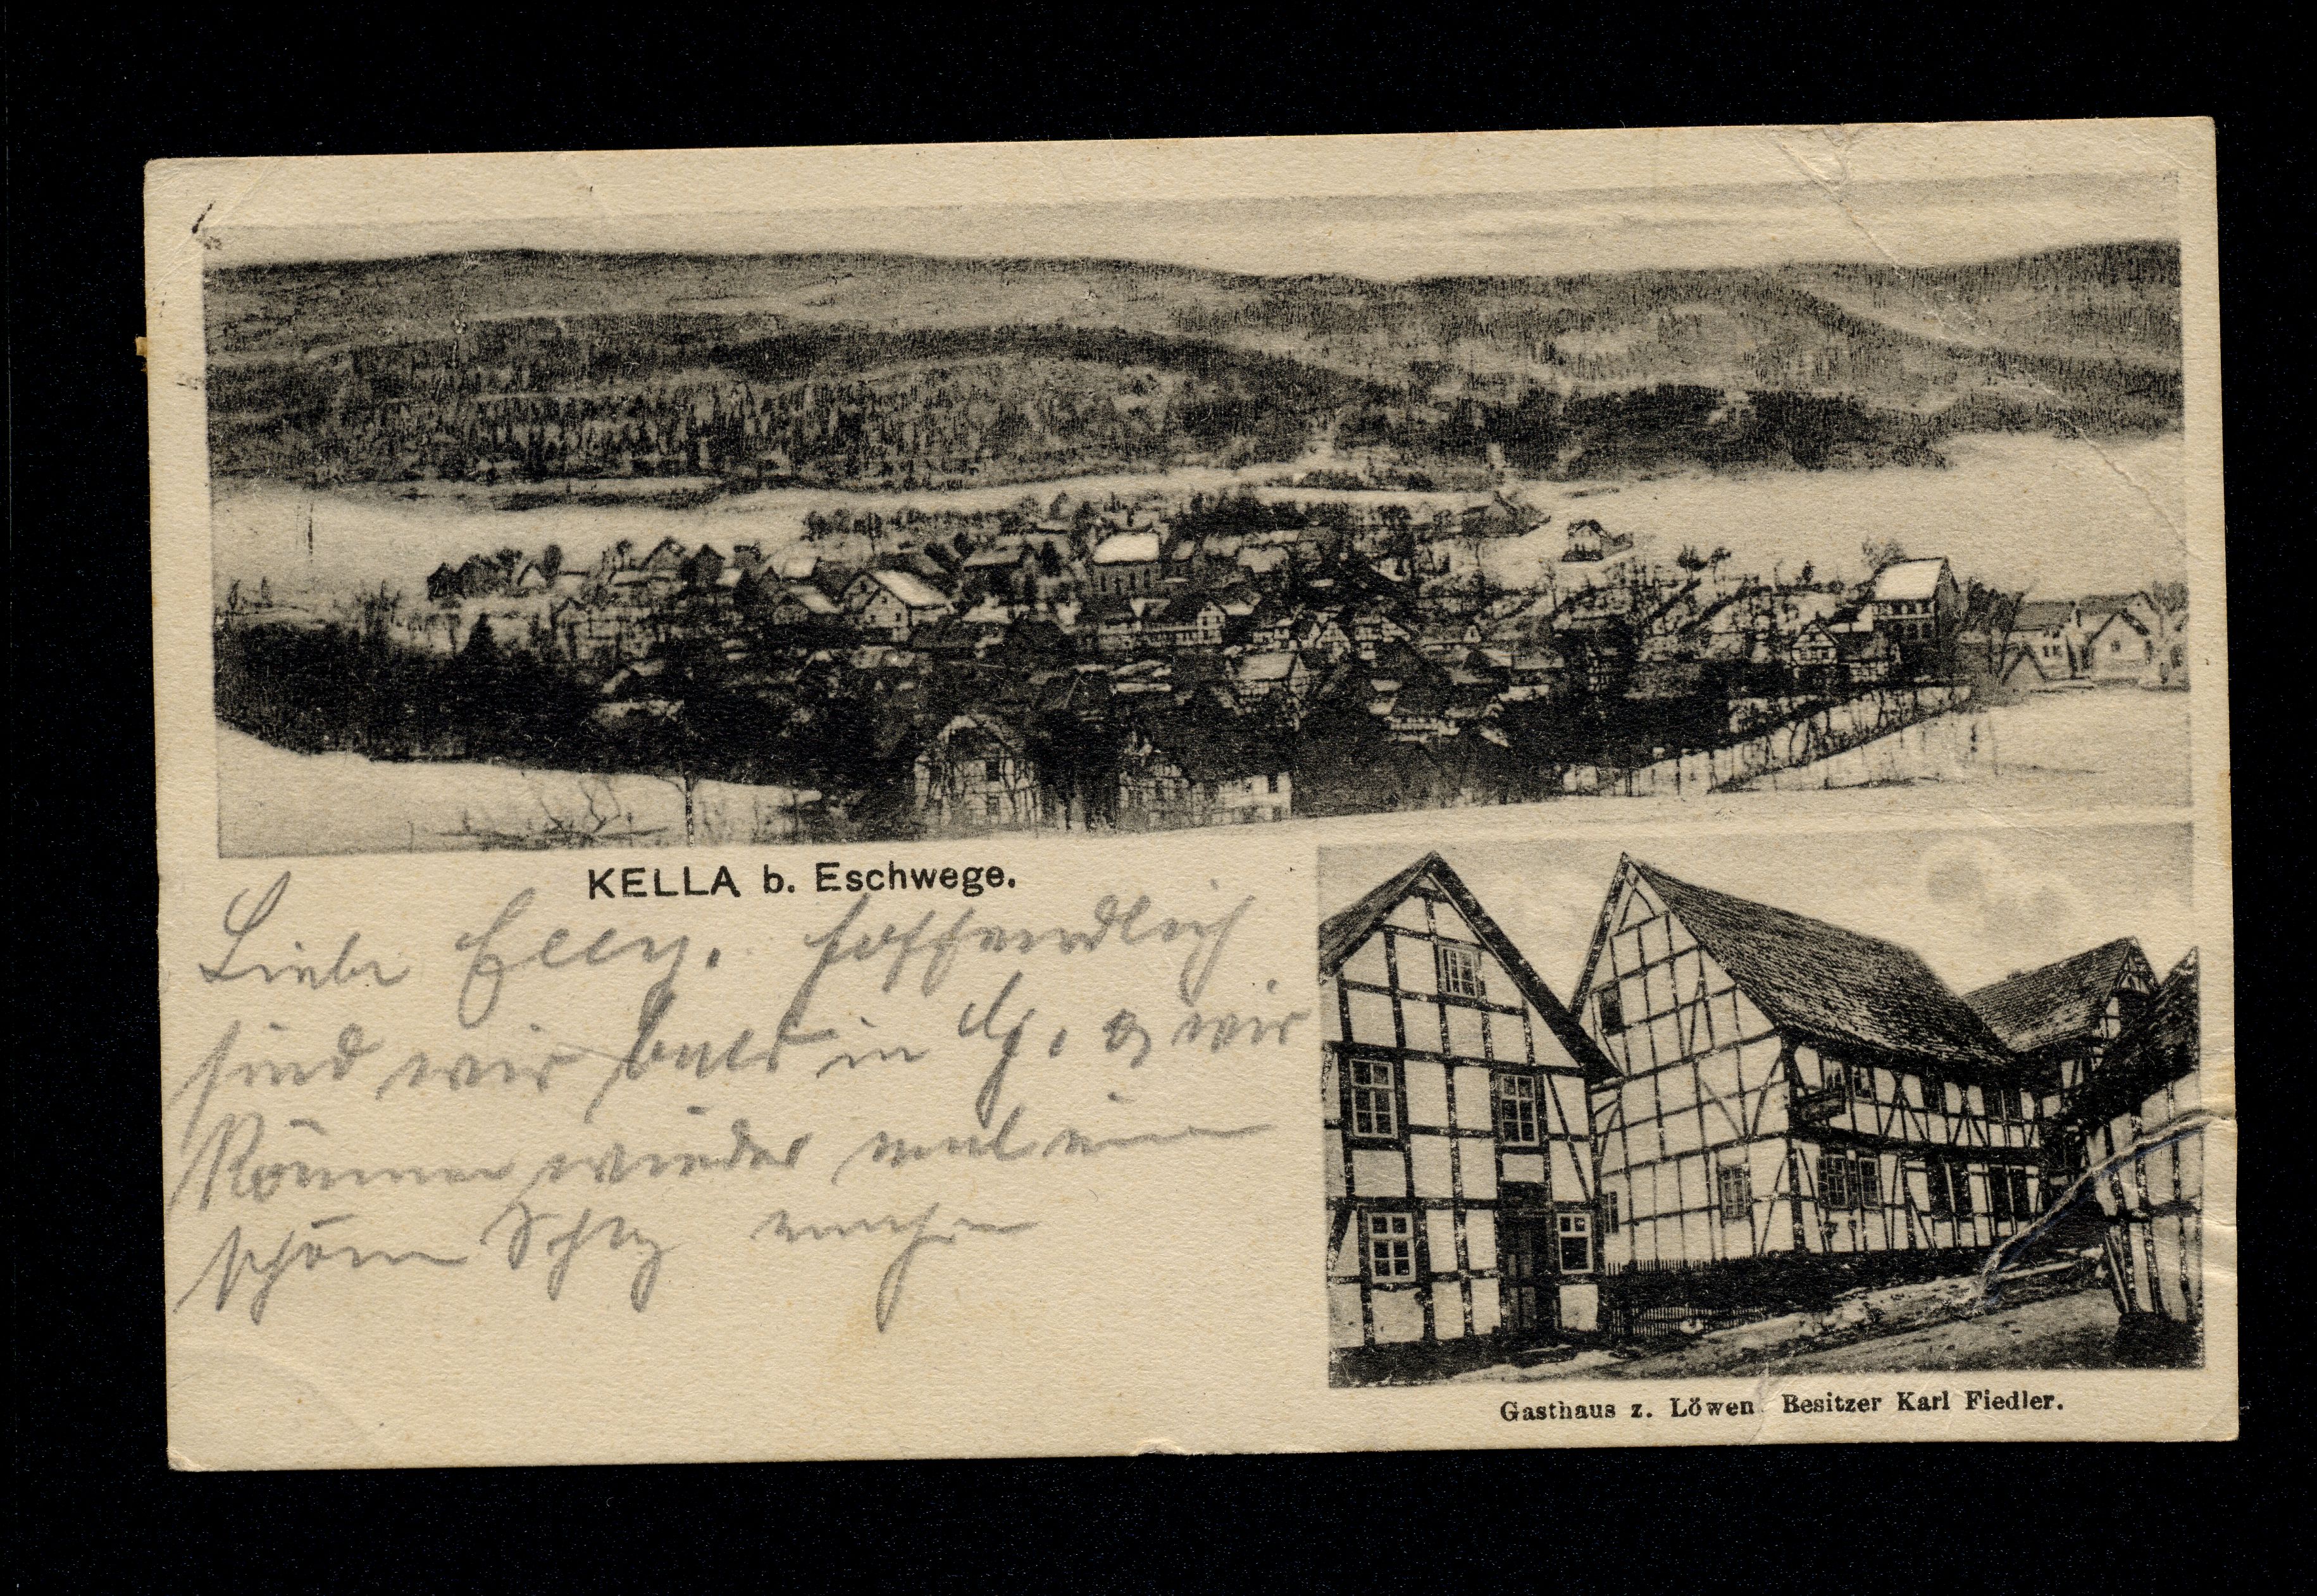 KELLA b. Eschwege.
Liebe Elly. Hoffendlich
sind wir bald in & wir
können wieder mal ein
schönen machen
Gasthaus z. Löwen Besitzer Karl Fiedler.